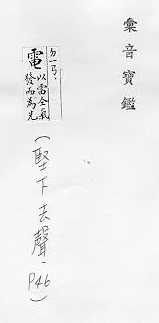 彙音寶鑑
ㄉㄧㄢˋ
電 以雷仝氣
發而為光
(堅下去聲, P46)